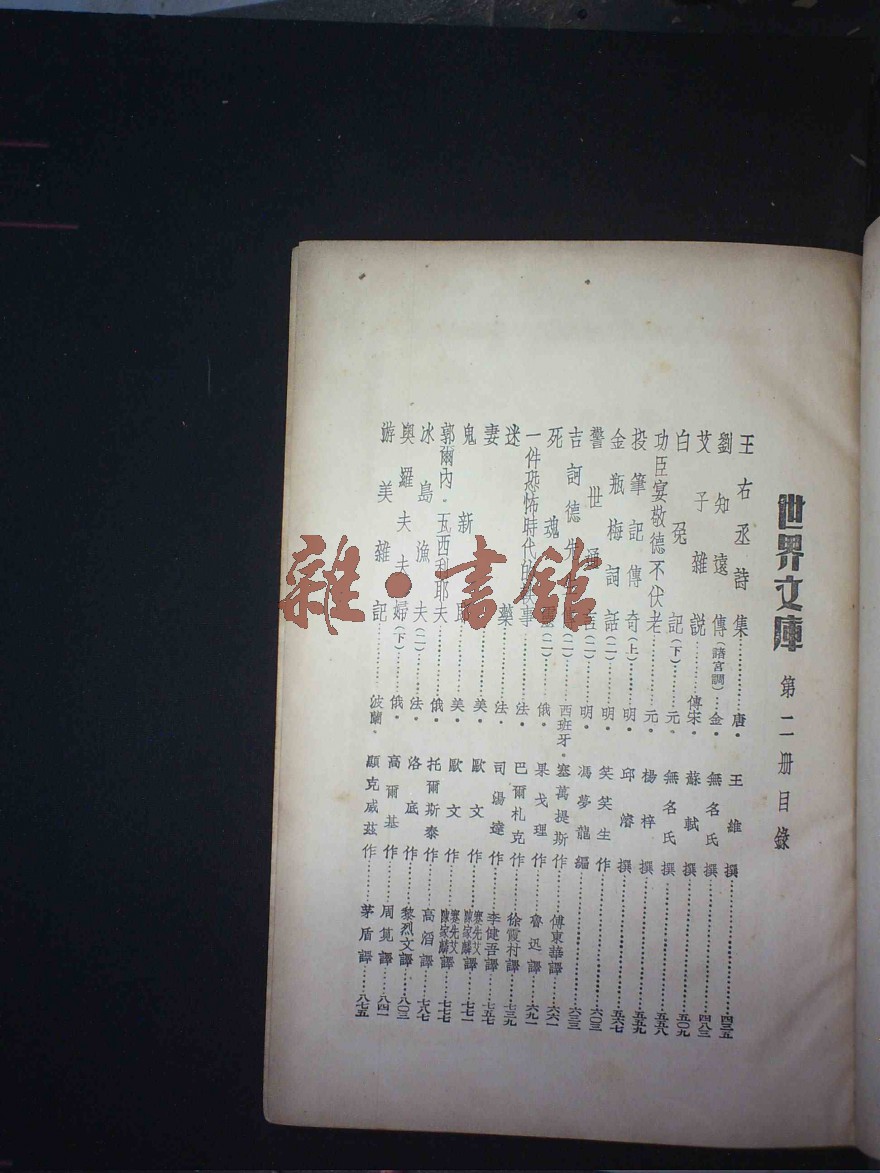 世界文庫 第二册目錄
王右丞詩集…………唐·王維撰…………四三五
劉知遠傳(諸宮調)…金·無名氏撰…………四八三
艾子雜說…………傳宋·蘇軾撰…………五〇九
白兔記(下)……元·無名氏撰…………五五八
功臣宴敬德不伏老……元·楊梓撰…………五五九
投筆記傳奇(上)……明·邱濬撰…………五六七
金瓶梅詞話(二)……明·笑笑生作…………六〇三
警世通言(二)……明·馮夢龍編…………六三三
吉訶德先生(二)……西班牙·塞萬提斯作……傅東華譯……六六一
死魂靈(二)……俄·果戈理作……魯迅譯……六九一
一件恐怖時代的軼事……法·巴爾札克作……徐霞村譯……七三九
迷藥…………法·司湯達作……李健吾譯……七五七
妻…………美·歐文作……蹇先艾 陳家麟譯……七七一
鬼新郎…………美·歐文作……蹇先艾 陳家麟譯……七七七
郭爾內·瓦西利耶夫……俄·托爾斯泰作……高滔譯……七八七
冰島漁夫(二)……法·洛底作……黎烈文譯……八〇三
奧羅夫夫婦(下)……俄·高爾基作……周筧譯……八四一
游美雜記…………波蘭·顯克威茲作……茅盾譯……八七五
雜·書館